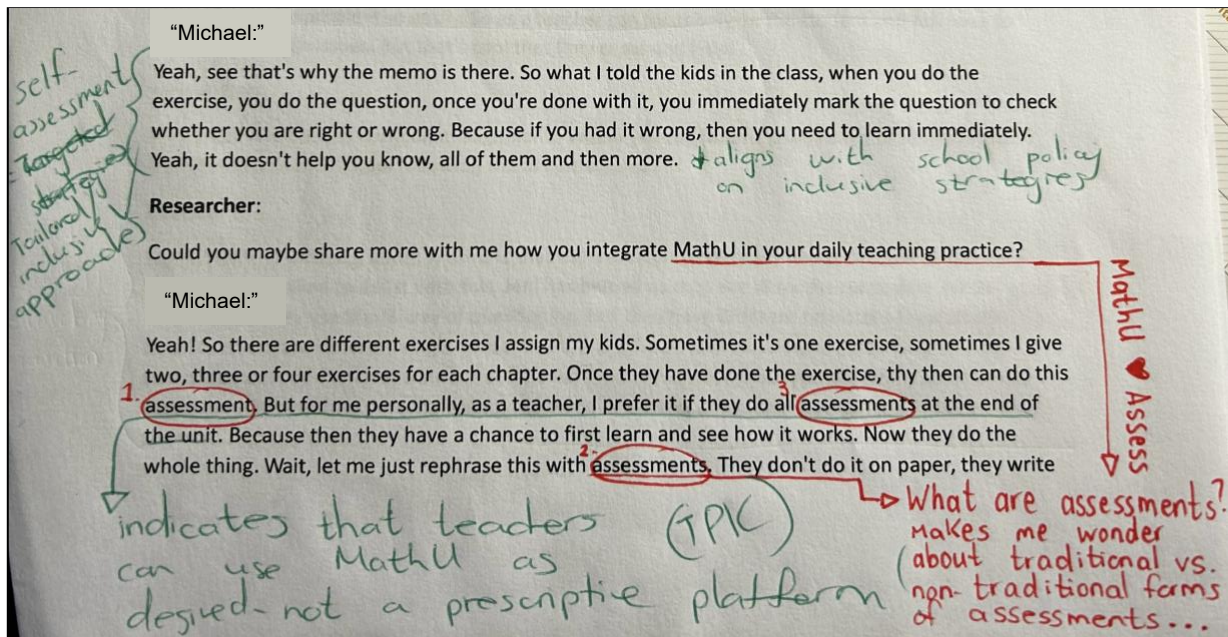 “Michael:”
self-
assessment
Targeted
strategies
Tailored
inclusive
approaches
Yeah, see that's why the memo is there. So what I told the kids in the class, when you do the
exercise, you do the question, once you're done with it, you immediately mark the question to check
whether you are right or wrong. Because if you had it wrong, then you need to learn immediately.
Yeah, it doesn't help you know, all of them and then more.
aligns with school policy
on inclusive strategies
Researcher:
Could you maybe share more with me how you integrate MathU in your daily teaching practice?
“Michael:”
MathU ♥ Assess
Yeah! So there are different exercises I assign my kids. Sometimes it's one exercise, sometimes I give
two, three or four exercises for each chapter. Once they have done the exercise, thy then can do this
1. assessment. But for me personally, as a teacher, I prefer it if they do all 3 assessments at the end of
the unit. Because then they have a chance to first learn and see how it works. Now they do the
whole thing. Wait, let me just rephrase this with 2. assessments. They don't do it on paper, they write
indicates that teachers (TPIC)
can use MathU as
desired - not a prescriptive platform
What are assessments?
Makes me wonder
about traditional vs.
non-traditional forms
of assessments...